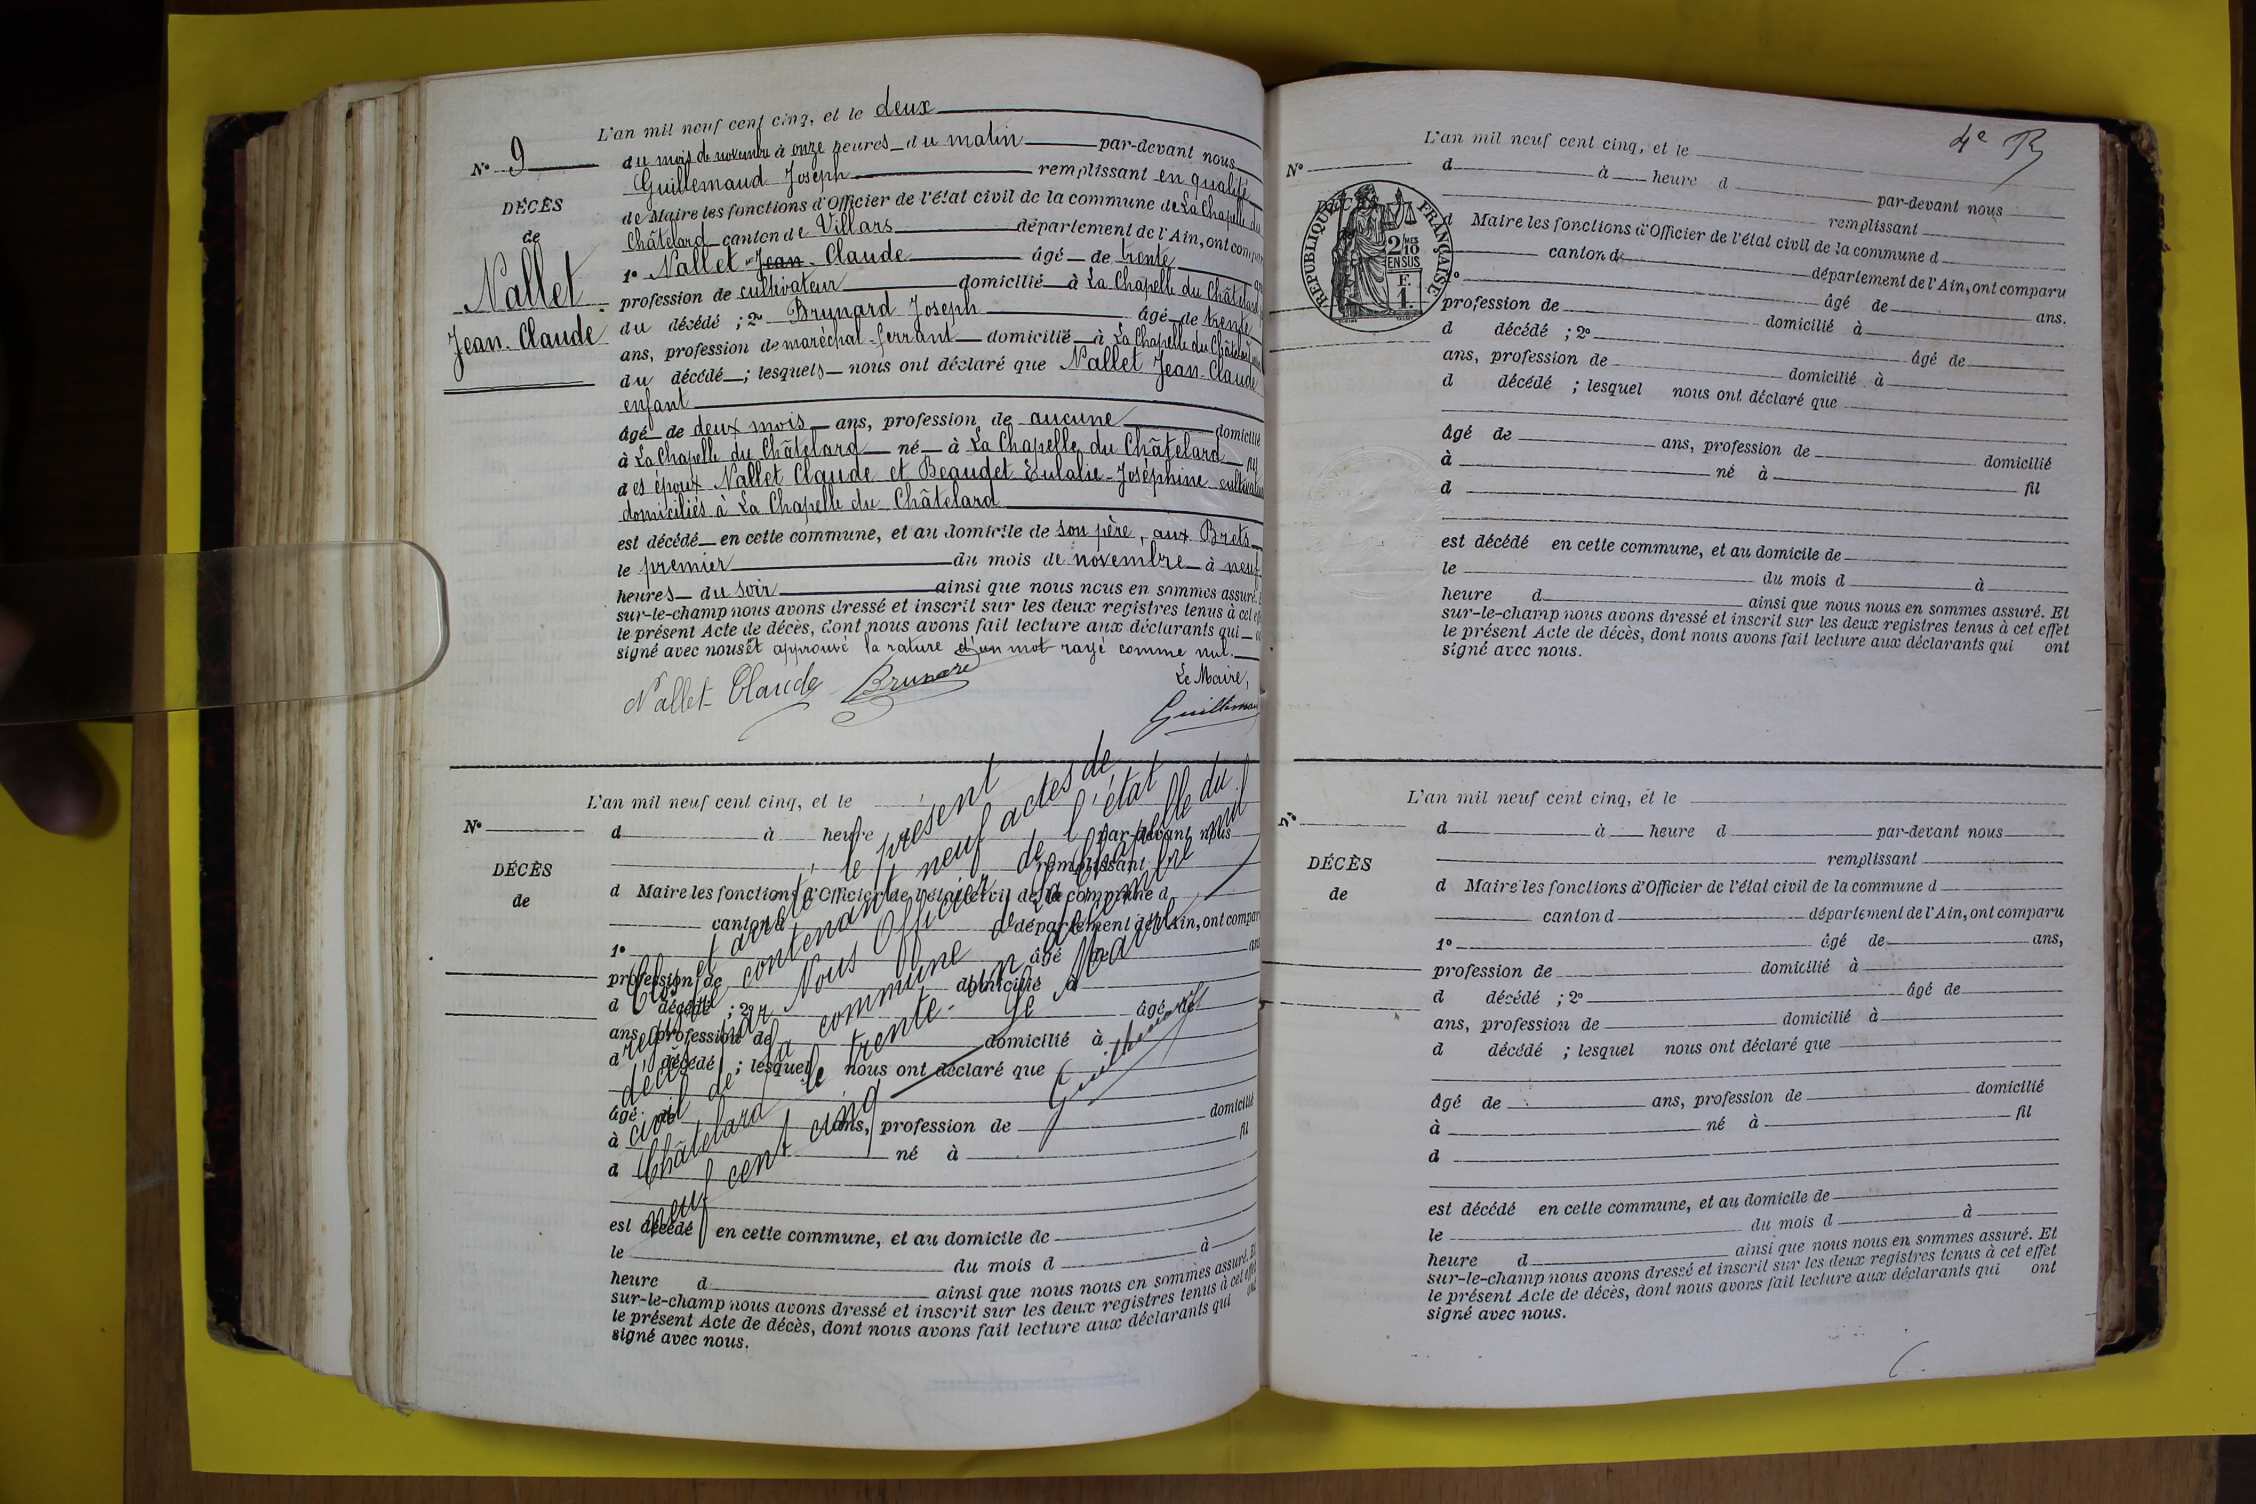 L'an mil neuf cent cinq, et le deux
No 9
du mois de novembre à onze heures du matin par-devant nous
Guillemaud Joseph remplissant en qualité
DÉCÈS
de Maire les fonctions d'Officier de l'état civil de la commune de La Chapelle du
de
Châtelard canton de Villars département de l'Ain, ont compar
Nallet
1o Nallet Jean Claude âgé de trente
profession de cultivateur domicilié à La Chapelle du Châtelard
Jean-Claude
du décédé ; 2o Brunard Joseph âgé de trente
ans, profession de maréchal-ferrant domicilié à La Chapelle du Châtelard
du décédé ; lesquels nous ont déclaré que Nallet Jean-Claude
enfant
âgé de deux mois ans, profession de aucune domicilié
à La Chapelle du Châtelard né à La Chapelle du Châtelard fil
des époux Nallet Claude et Beaudet Eulalie-Joséphine
domiciliés à La Chapelle du Châtelard
est décédé en cette commune, et au domicile de son père, aux Brets
le premier du mois de novembre à neuf
heures du soir ainsi que nous nous en sommes assuré.
sur-le-champ nous avons dressé et inscrit sur les deux registres tenus à cet
le présent Acte de décès, dont nous avons fait lecture aux déclarants qui
signé avec nous et approuvé la rature d'un mot rayé comme nul.
Le Maire,
Nallet Claude Brunard
Guillemaud
L'an mil neuf cent cinq, et le
No
d à heure par-devant nous
remplissant
DÉCÈS
d Maire les fonctions d'Officier de l'état civil de la commune d
de
canton d département de l'Ain, ont compar
1o âgé de ans
profession de domicilié à
d décédé ; 2o âgé de
ans, profession de domicilié à
d décédé ; lesquel nous ont déclaré que
âgé de ans, profession de domicilié
à né à fil
d
est décédé en cette commune, et au domicile de
le du mois d à
heure d ainsi que nous nous en sommes assuré. Et
sur-le-champ nous avons dressé et inscrit sur les deux registres tenus à cet effet
le présent Acte de décès, dont nous avons fait lecture aux déclarants qui ont
signé avec nous.
Clos et arrêté le présent
registre contenant neuf actes de
décès par Nous Officier de l'état
civil de la commune de La Chapelle du
Châtelard le trente-un décembre mil
neuf cent cinq
Le Maire
Guillemaud
4e
L'an mil neuf cent cinq, et le
No
d à heure d par-devant nous
remplissant
d Maire les fonctions d'Officier de l'état civil de la commune d
canton d département de l'Ain, ont comparu
âgé de ans.
profession de domicilié à
d décédé ; 2o âgé de
ans, profession de domicilié à
d décédé ; lesquel nous ont déclaré que
âgé de ans, profession de domicilié
à né à fil
d
est décédé en cette commune, et au domicile de
le du mois d à
heure d ainsi que nous nous en sommes assuré. Et
sur-le-champ nous avons dressé et inscrit sur les deux registres tenus à cet effet
le présent Acte de décès, dont nous avons fait lecture aux déclarants qui ont
signé avec nous.
RÉPUBLIQUE FRANÇAISE
2/10 MES
EN SUS
F.
1.
L'an mil neuf cent cinq, et le
No
d à heure d par-devant nous
remplissant
DÉCÈS
d Maire les fonctions d'Officier de l'état civil de la commune d
de
canton d département de l'Ain, ont comparu
1o âgé de ans,
profession de domicilié à
d décédé ; 2o âgé de
ans, profession de domicilié à
d décédé ; lesquel nous ont déclaré que
âgé de ans, profession de domicilié
à né à fil
d
est décédé en cette commune, et au domicile de
le du mois d à
heure d ainsi que nous nous en sommes assuré. Et
sur-le-champ nous avons dressé et inscrit sur les deux registres tenus à cet effet
le présent Acte de décès, dont nous avons fait lecture aux déclarants qui ont
signé avec nous.